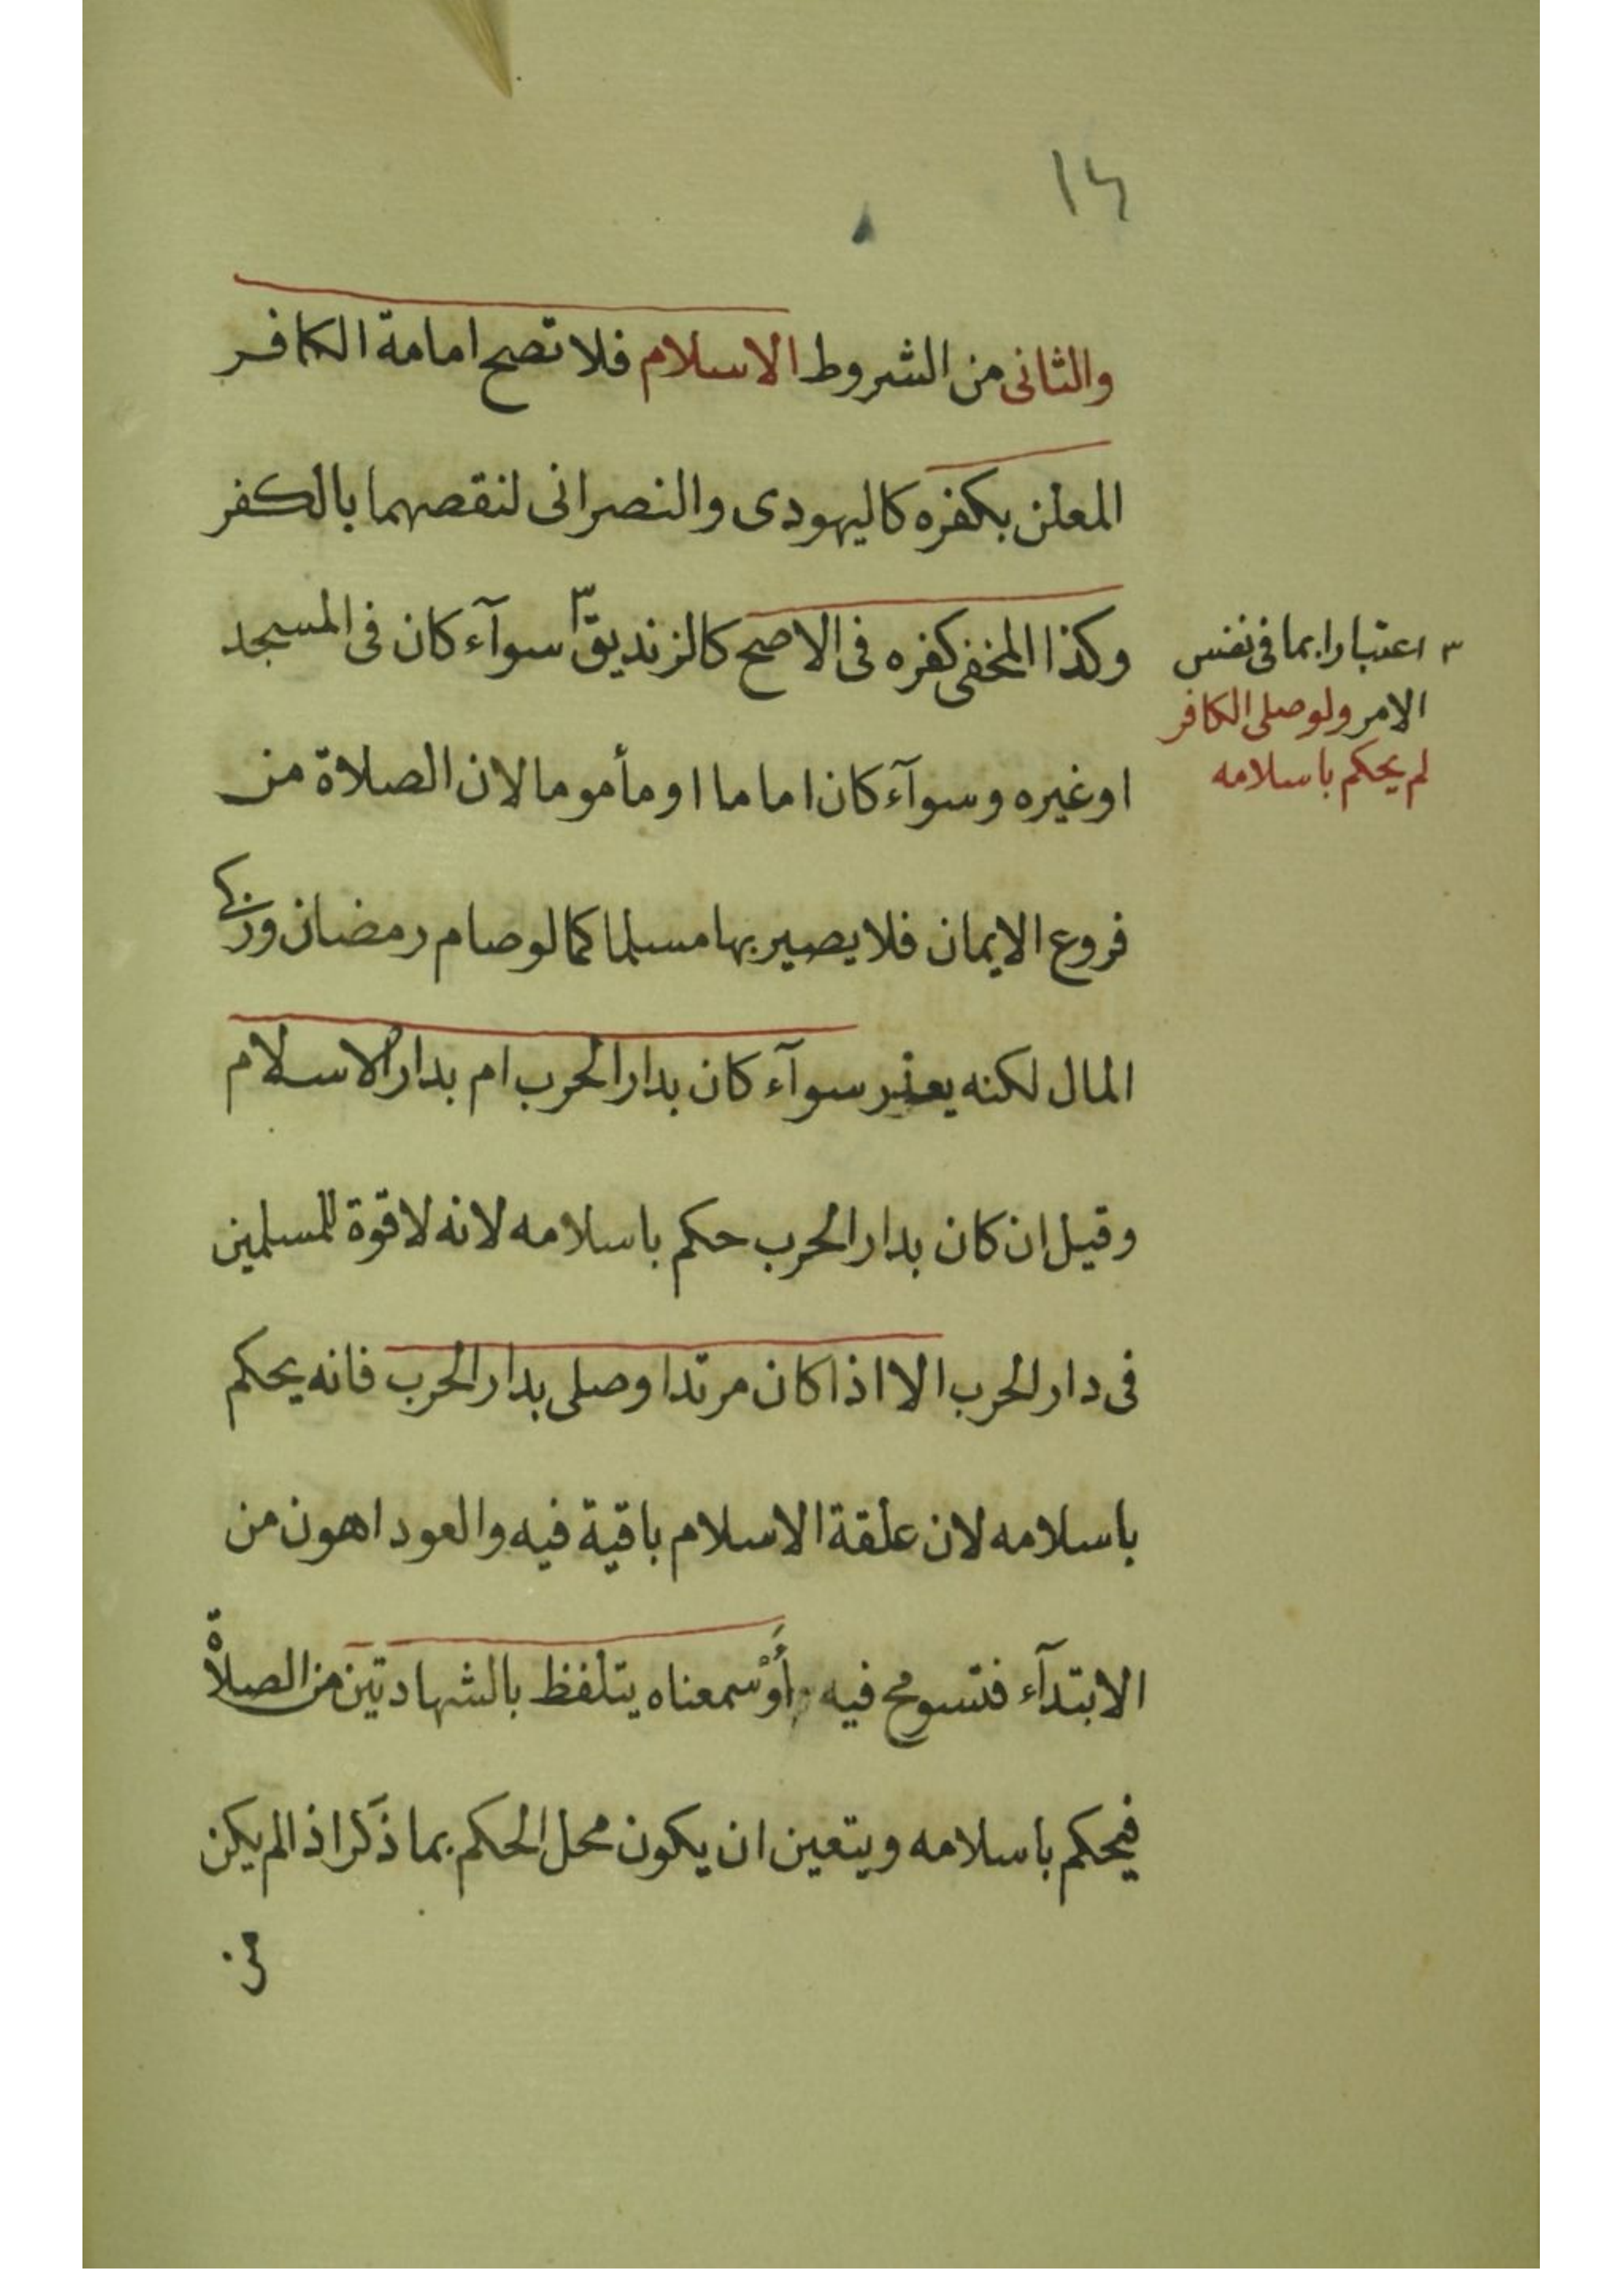 ١٤
والثانى من الشروط الاسلام فلا تصح امامة الكافر
المعلن بكفره كاليهودى والنصرانى لنقصهما بالكفر
وكذا المخفى كفره فى الاصح كالزنديق٣ سوآء كان فى المسجد
٣ اعتبارا بما فى نفس
الامر ولو صلى الكافر
لم يحكم باسلامه
او غيره وسوآء كان اماما او مأموما لان الصلاة من
فروع الايمان فلا يصير بها مسلما كما لو صام رمضان وزكى
المال لكنه يعزر سوآء كان بدار الحرب ام بدار الاسلام
وقيل ان كان بدار الحرب حكم باسلامه لانه لا قوة للمسلمين
فى دار الحرب الا اذا كان مرتدا وصلى بدار الحرب فانه يحكم
باسلامه لان علقة الاسلام باقية فيه والعود اهون من
الابتدآء فتسومح فيه أَوْ سمعناه يتلفظ بالشهادتين من الصلاة
فيحكم باسلامه ويتعين ان يكون محل الحكم بما ذكر اذا لم يكن
من